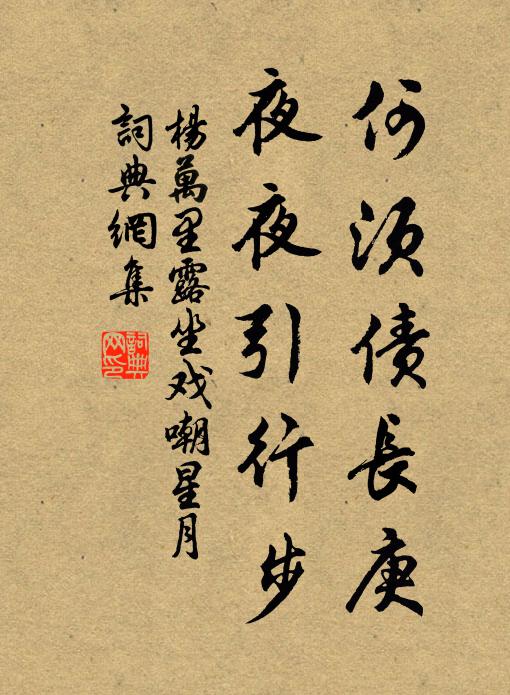 何須債長庚
夜夜引行步
楊萬里露坐戏嘲星月
詞典網集
詞典網印